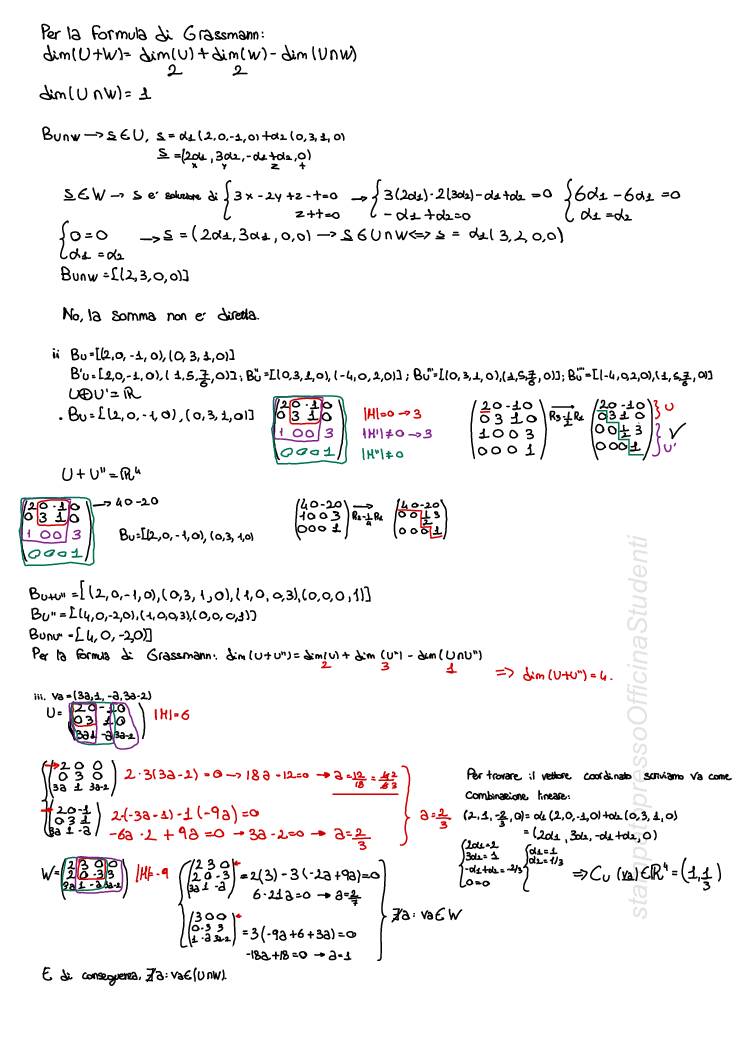 Per la formula di Grassmann:
dim(U+W)= dim(U)+dim(W)-dim(U∩W)
2 2
dim(U∩W)= 1
B∪∩w → s∈U, s=α1(2,0,-1,0)+α2(0,3,1,0)
s=(2α1,3α2,-α1+α2,0)
x y z t
s∈W → s e' soluzione di { 3x-2y+z-t=0 → { 3(2α1)-2(3α2)-α1+α2=0 { 6α1-6α1=0
z+t=0 -α1+α2=0 α1=α2
{ 0=0 → s=(2α1,3α1,0,0) → s∈U∩W ⇔ s=α1(3,2,0,0)
α1=α2
BU∩W=[(2,3,0,0)]
No, la somma non e' diretta.
ii BU=[(2,0,-1,0),(0,3,1,0)]
B'U=[2,0,-1,0),(1,5,7/6,0)]; B''U=[(0,3,1,0),(-4,0,2,0)]; B'''U=[(0,3,1,0),(1,5,7/6,0)]; B''''U=[(-4,0,2,0),(1,5,7/6,0)]
U⊕U'=ℝ
. BU=[(2,0,-1,0),(0,3,1,0)]
(2 0 -1 0 |H|=0→3 (2 0 -1 0 (2 0 -1 0 } U
0 3 1 0 |H'|≠0→3 0 3 1 0 R3-1/2R1 0 3 1 0
1 0 0 3 |H''|≠0 1 0 0 3 → 0 0 1/2 3 } U' ✓
0 0 0 1) 0 0 0 1) 0 0 0 1)
U+U''=ℝ4
(2 0 -1 0 → 4 0 -2 0 (4 0 -2 0 (4 0 -2 0
0 3 1 0 1 0 0 3 → R2-1/4R1 0 0 1/2 3
1 0 0 3 BU=[(2,0,-1,0),(0,3,1,0) 0 0 0 1) 0 0 0 1)
0 0 0 1)
BU+U''=[(2,0,-1,0),(0,3,1,0),(1,0,0,3),(0,0,0,1)]
BU''=[(4,0,-2,0),(1,0,0,3),(0,0,0,1)]
BU∩U''=[4,0,-2,0)]
Per la formula di Grassmann: dim(U+U'')=dim(U)+dim(U'')-dim(U∩U'')
2 3 1 ⇒ dim(U+U'')=4.
iii. va=(3a,1,-a,3a-2)
U= (2 0 -1 0
0 3 1 0 |H|=6
3a 1 -a 3a-2)
(2 0 0
0 3 0 2·3(3a-2)=0 → 18a-12=0 → a=12/18
3a 1 3a-2)
(2 0 -1
0 3 1 2·(-3a-1)-1(-9a)=0
3a 1 -a) -6a-2+9a=0 → 3a-2=0 → a=2/3
} a=2/3
Per trovare il vettore coordinato scriviamo va come
combinazione lineare:
(2,1,-2/3,0)=α1(2,0,-1,0)+α2(0,3,1,0)
=(2α1,3α2,-α1+α2,0)
{ 2α1=2 { α1=1
3α2=1 α2=1/3
-α1+α2=-2/3
0=0 ⇒ CU(va)∈ℝ4=(1,1/3)
W= (2 3 0 0
2 0 -3 3 |H|=-9
3a 1 -a 3a-2)
(2 3 0
2 0 -3 =2(3)-3(-2a+9a)=0
3a 1 -a) 6-21a=0 → a=2/7
(3 0 0
0 -3 3 =3(-9a+6+3a)=0
1 -a 3a-2) -18a+18=0 → a=1
} ∄a: va∈W
E di conseguenza, ∄a: va∈(U∩W).
stampatopressoOfficinaStudenti